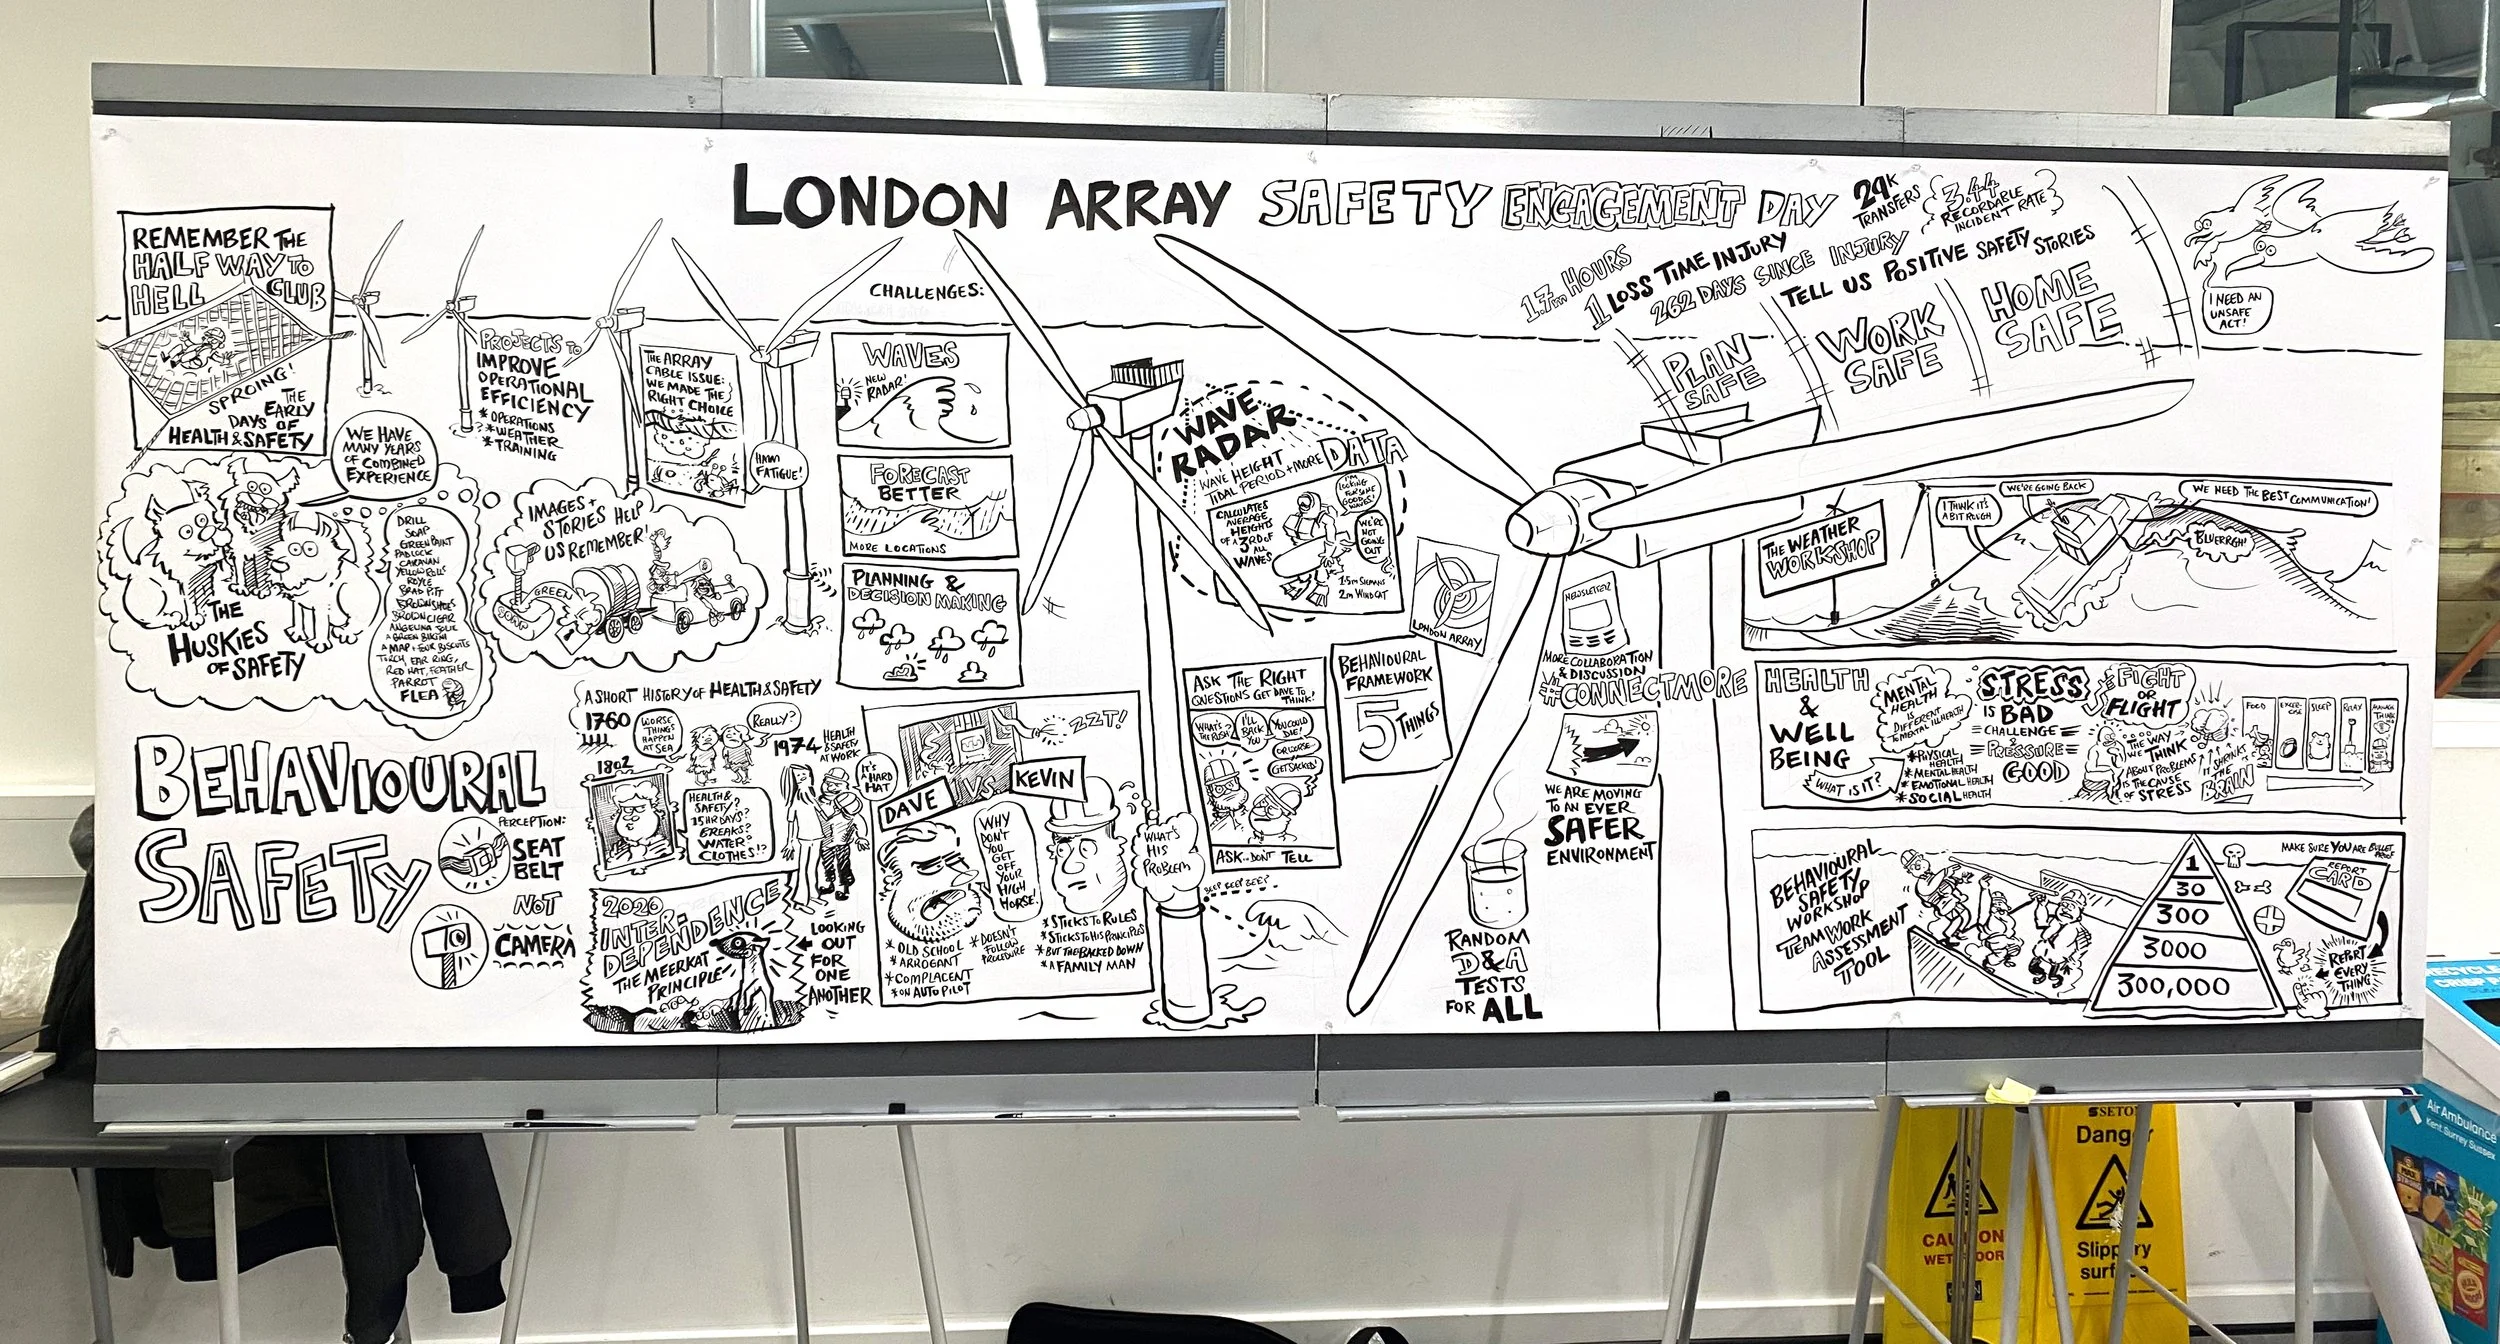 LONDON ARRAY SAFETY ENGAGEMENT DAY
29K
TRANSFERS
3.44
RECORDABLE
INCIDENT RATE
1.7m HOURS
1 LOSS TIME INJURY
262 DAYS SINCE INJURY
TELL US POSITIVE SAFETY STORIES
PLAN
SAFE
WORK
SAFE
HOME
SAFE
I NEED AN
UNSAFE
ACT!
REMEMBER THE
HALF WAY TO
HELL CLUB
SPROING!
THE
EARLY
DAYS OF
HEALTH & SAFETY
WE HAVE
MANY YEARS
OF COMBINED
EXPERIENCE
THE
HUSKIES
OF SAFETY
DRILL
SOAP
GREEN PAINT
PADLOCK
CARAVAN
YELLOW ROLLS
ROYCE
BRAD PITT
BROWN SHOES
BROWN CIGAR
ANGELINA JOLIE
A GREEN BIKINI
A MAP + FOUR BISCUITS
TORCH, EAR RING,
RED HAT, FEATHER
PARROT
FLEA
PROJECTS TO
IMPROVE
OPERATIONAL
EFFICIENCY
* OPERATIONS
* WEATHER
* TRAINING
THE ARRAY
CABLE ISSUE:
WE MADE THE
RIGHT CHOICE
FATIGUE!
IMAGES +
STORIES HELP
US REMEMBER!
SOAP
GREEN
CHALLENGES:
WAVES
NEW
RADAR!
FORECAST
BETTER
MORE LOCATIONS
PLANNING &
DECISION MAKING
WAVE
RADAR
DATA
WAVE HEIGHT
TIDAL PERIOD + MORE
CALCULATES
AVERAGE
HEIGHTS
OF A 3RD OF
ALL
WAVES
I'M
LOOKING
FOR SOME
GOODIES!
WE'RE
NOT
GOING
OUT
1.5m SIEMANS
2m WINDCAT
LONDON ARRAY
ASK THE RIGHT
QUESTIONS GET DAVE TO
THINK!
WHAT'S
THE RUSH?
I'LL
BACK
YOU
YOU COULD
DIE!
OR WORSE..
GET SACKED!
ASK.. DON'T TELL
BEHAVIOURAL
FRAMEWORK
5 THINGS
NEWSLETTER
MORE COLLABORATION
& DISCUSSION
#CONNECTMORE
WE ARE MOVING
TO AN EVER
SAFER
ENVIRONMENT
RANDOM
D&A
TESTS
FOR ALL
THE WEATHER
WORKSHOP
I THINK IT'S
A BIT ROUGH
WE'RE GOING BACK
WE NEED THE BEST COMMUNICATION!
BLUERRGH!
HEALTH
&
WELL
BEING
WHAT IS IT?
MENTAL
HEALTH
IS
DIFFERENT
TO MENTAL ILLHEALTH
* PHYSICAL
HEALTH
* MENTAL HEALTH
* EMOTIONAL HEALTH
* SOCIAL HEALTH
STRESS
IS BAD
CHALLENGE
&
PRESSURE
GOOD
FIGHT
OR
FLIGHT
THE WAY
WE THINK
ABOUT PROBLEMS
IS THE CAUSE
OF STRESS
IT SHRINKS
THE
BRAIN
FOOD
EXERCISE
SLEEP
RELAX
BEHAVIOURAL
SAFETY
WORKSHOP
TEAMWORK
ASSESSMENT
TOOL
1
30
300
3000
300,000
MAKE SURE YOU ARE BULLET
PROOF
REPORT
CARD
REPORT
EVERY
THING
BEHAVIOURAL
SAFETY
PERCEPTION:
SEAT
BELT
NOT
CAMERA
A SHORT HISTORY OF HEALTH & SAFETY
1760
WORSE
THINGS
HAPPEN
AT SEA
REALLY?
1802
HEALTH &
SAFETY?
15 HR DAYS?
BREAKS?
WATER?
CLOTHES!?
1974 HEALTH
& SAFETY
AT WORK
IT'S
A HARD
HAT
2020
INTER-
DEPENDENCE
THE MEERKAT
PRINCIPLE
LOOKING
OUT
FOR
ONE
ANOTHER
ZZT!
DAVE
VS.
KEVIN
WHY
DON'T
YOU
GET
OFF
YOUR
HIGH
HORSE!
WHAT'S
HIS
PROBLEM
* OLD SCHOOL
* ARROGANT
* COMPLACENT
* ON AUTO PILOT
* DOESN'T
FOLLOW
PROCEDURE
* STICKS TO RULES
* STICKS TO HIS PRINCIPLES
* BUT THE BACKED DOWN
* A FAMILY MAN
BEEP BEEP BEEP
SETO
Danger
Slippery
surface
CAUTION
WET FLOOR
Air Ambulance
Kent Surrey Sussex